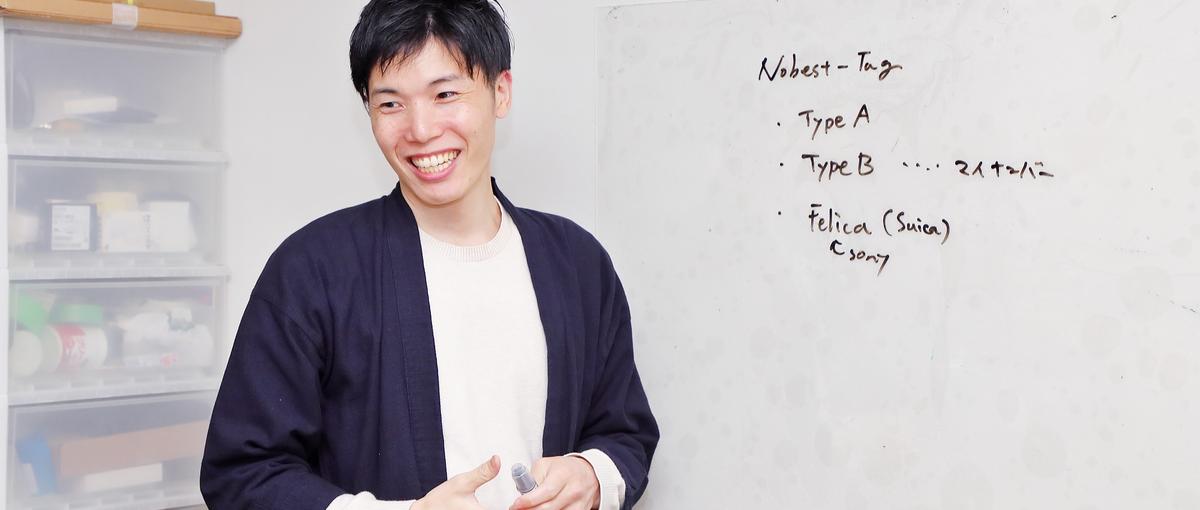 Nobest-Tag
・ Type A
・ Type B ‥‥ マイナンバー
・ Felica (Suica)
sony